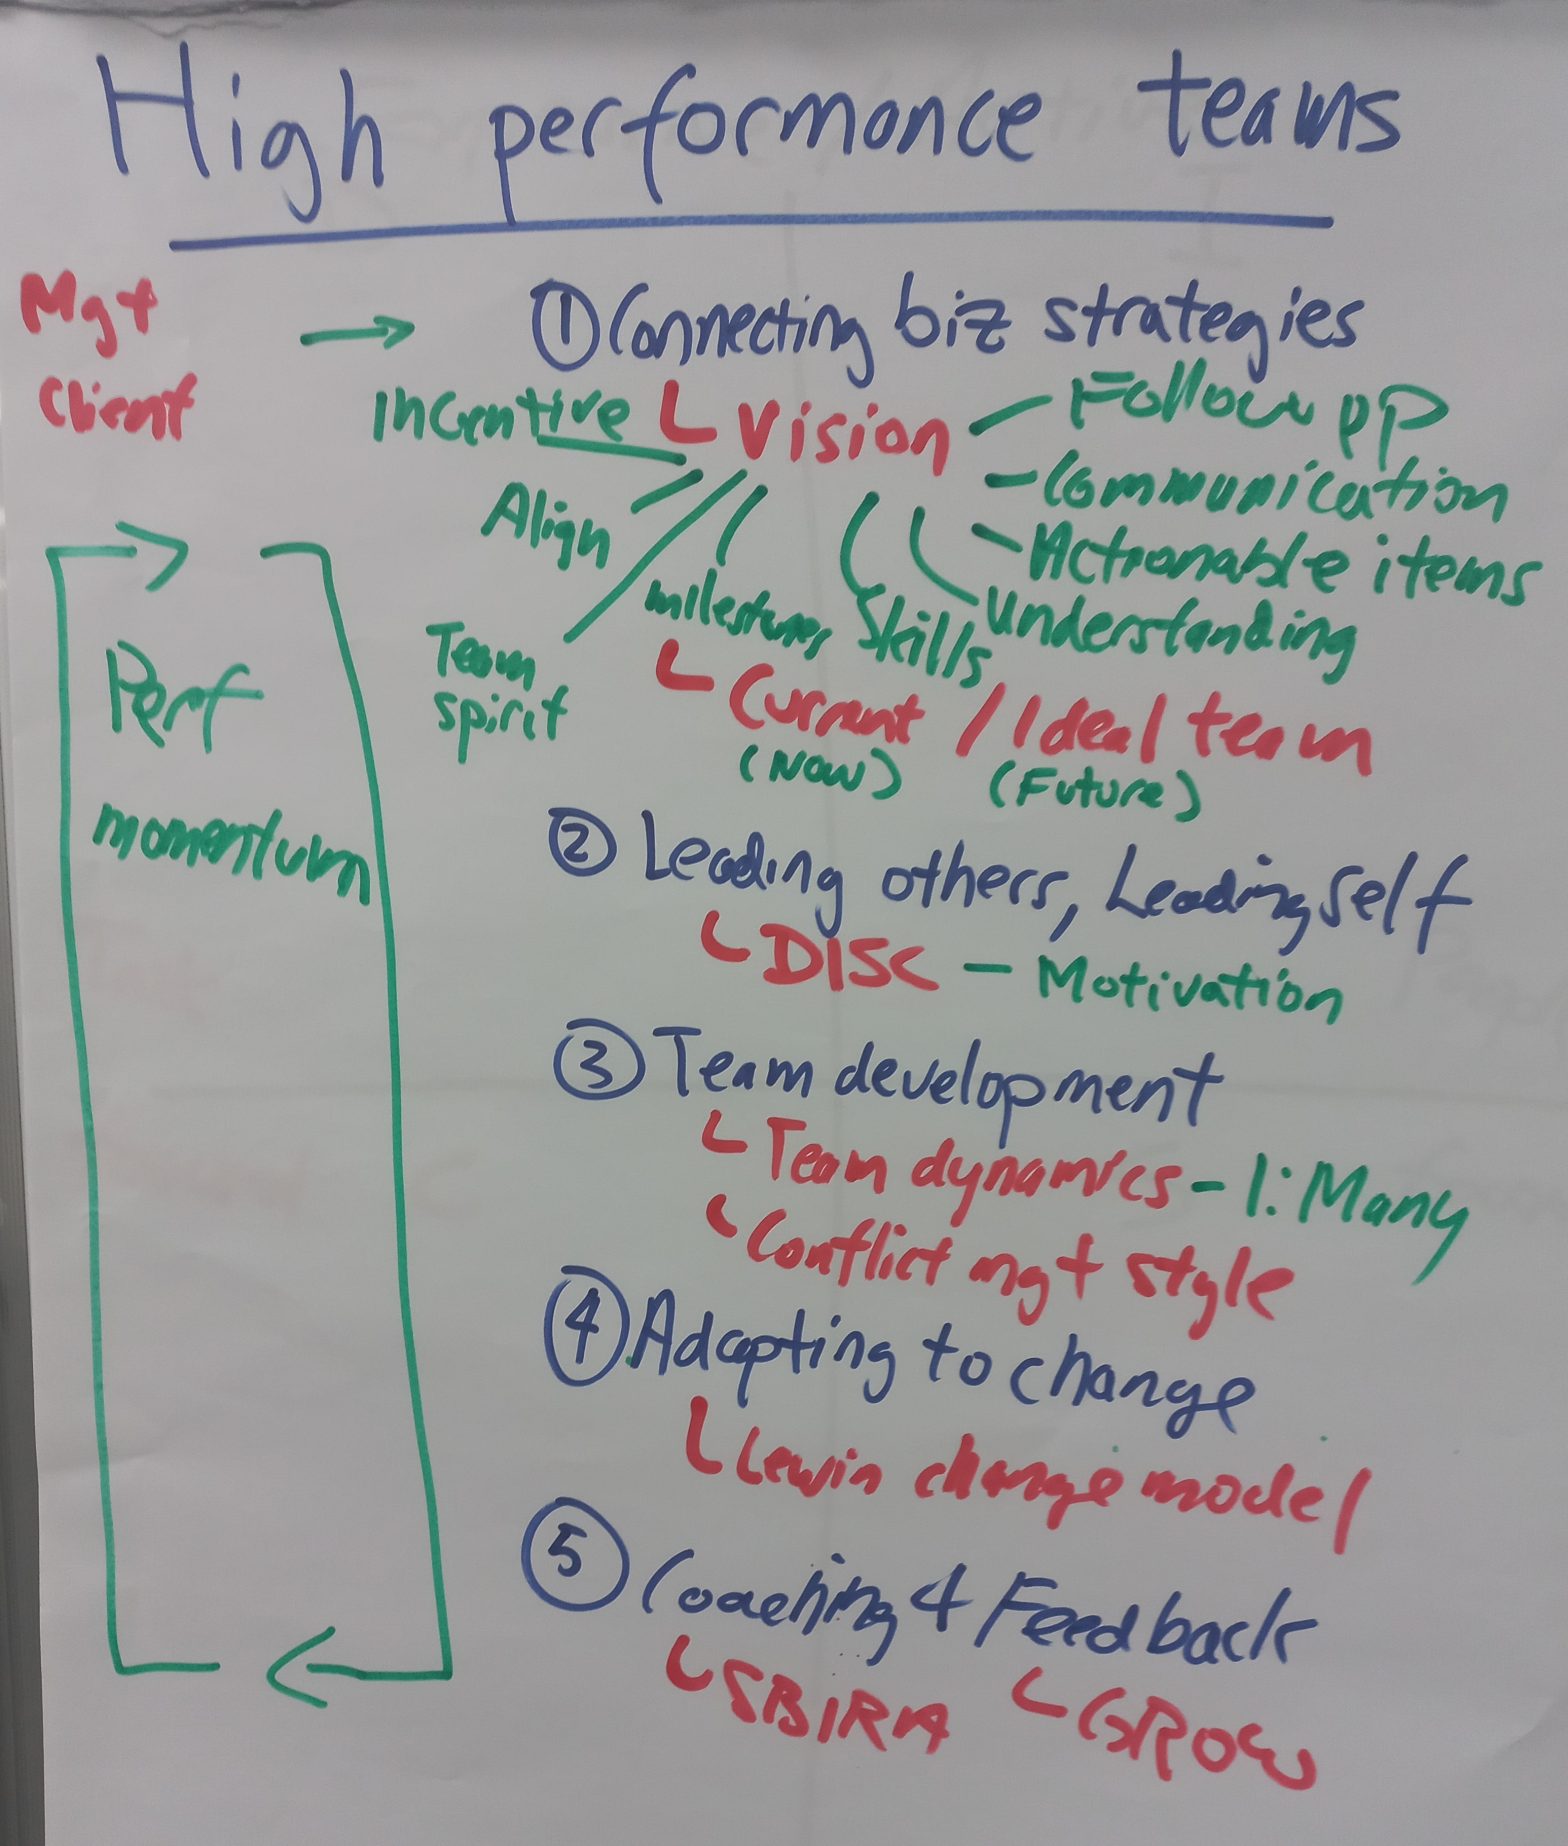 High performance teams
Mgt
Client
→ ① Connecting biz strategies
Incentive
Vision
Follow up
Communication
Actionable items
Understanding
Skills
milestones
Align
Team
spirit
Current / Ideal team
(Now) (Future)
Perf
momentum
② Leading others, Leading self
DISC - Motivation
③ Team development
Team dynamics - 1:Many
Conflict mgt style
④ Adapting to change
Lewin change model
⑤ Coaching & Feedback
SBIRA GROW